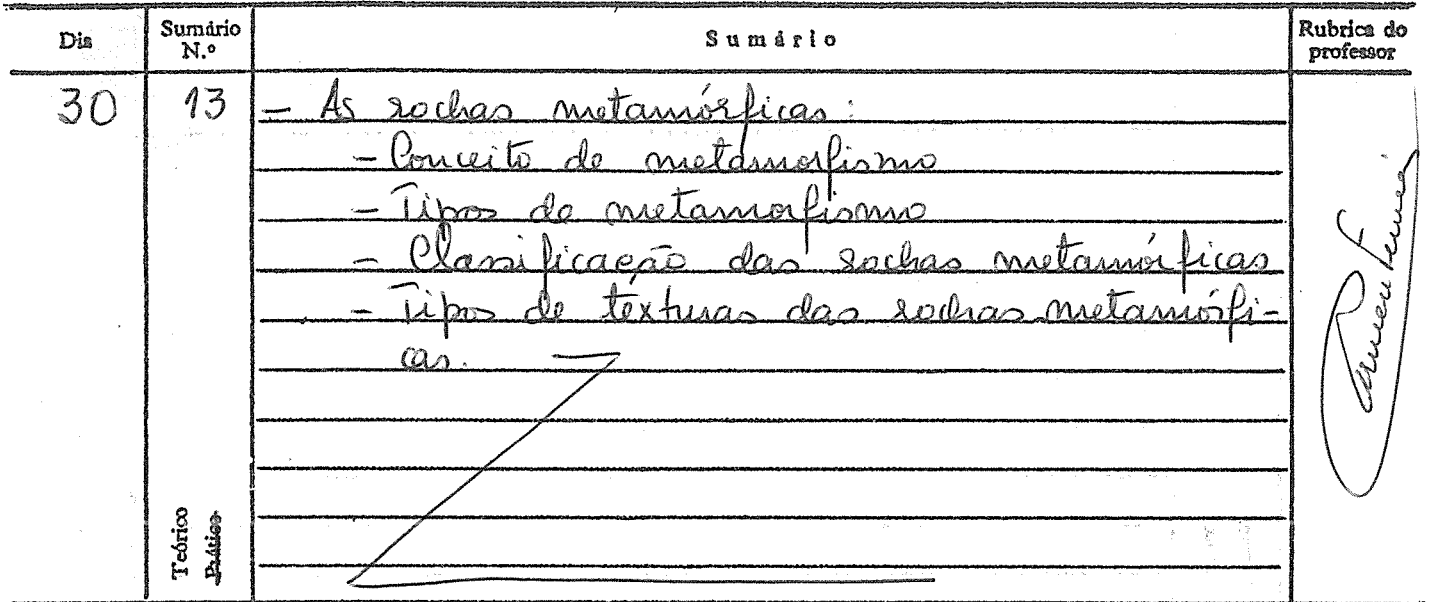 Dia
Sumário N.º
Sumário
Rubrica do professor
30
13
- As rochas metamórficas:
- Conceito de metamorfismo
- Tipos de metamorfismo
- Classificação das rochas metamórficas
- Tipos de texturas das rochas metamórfi-
cas.
Teórico
Prático